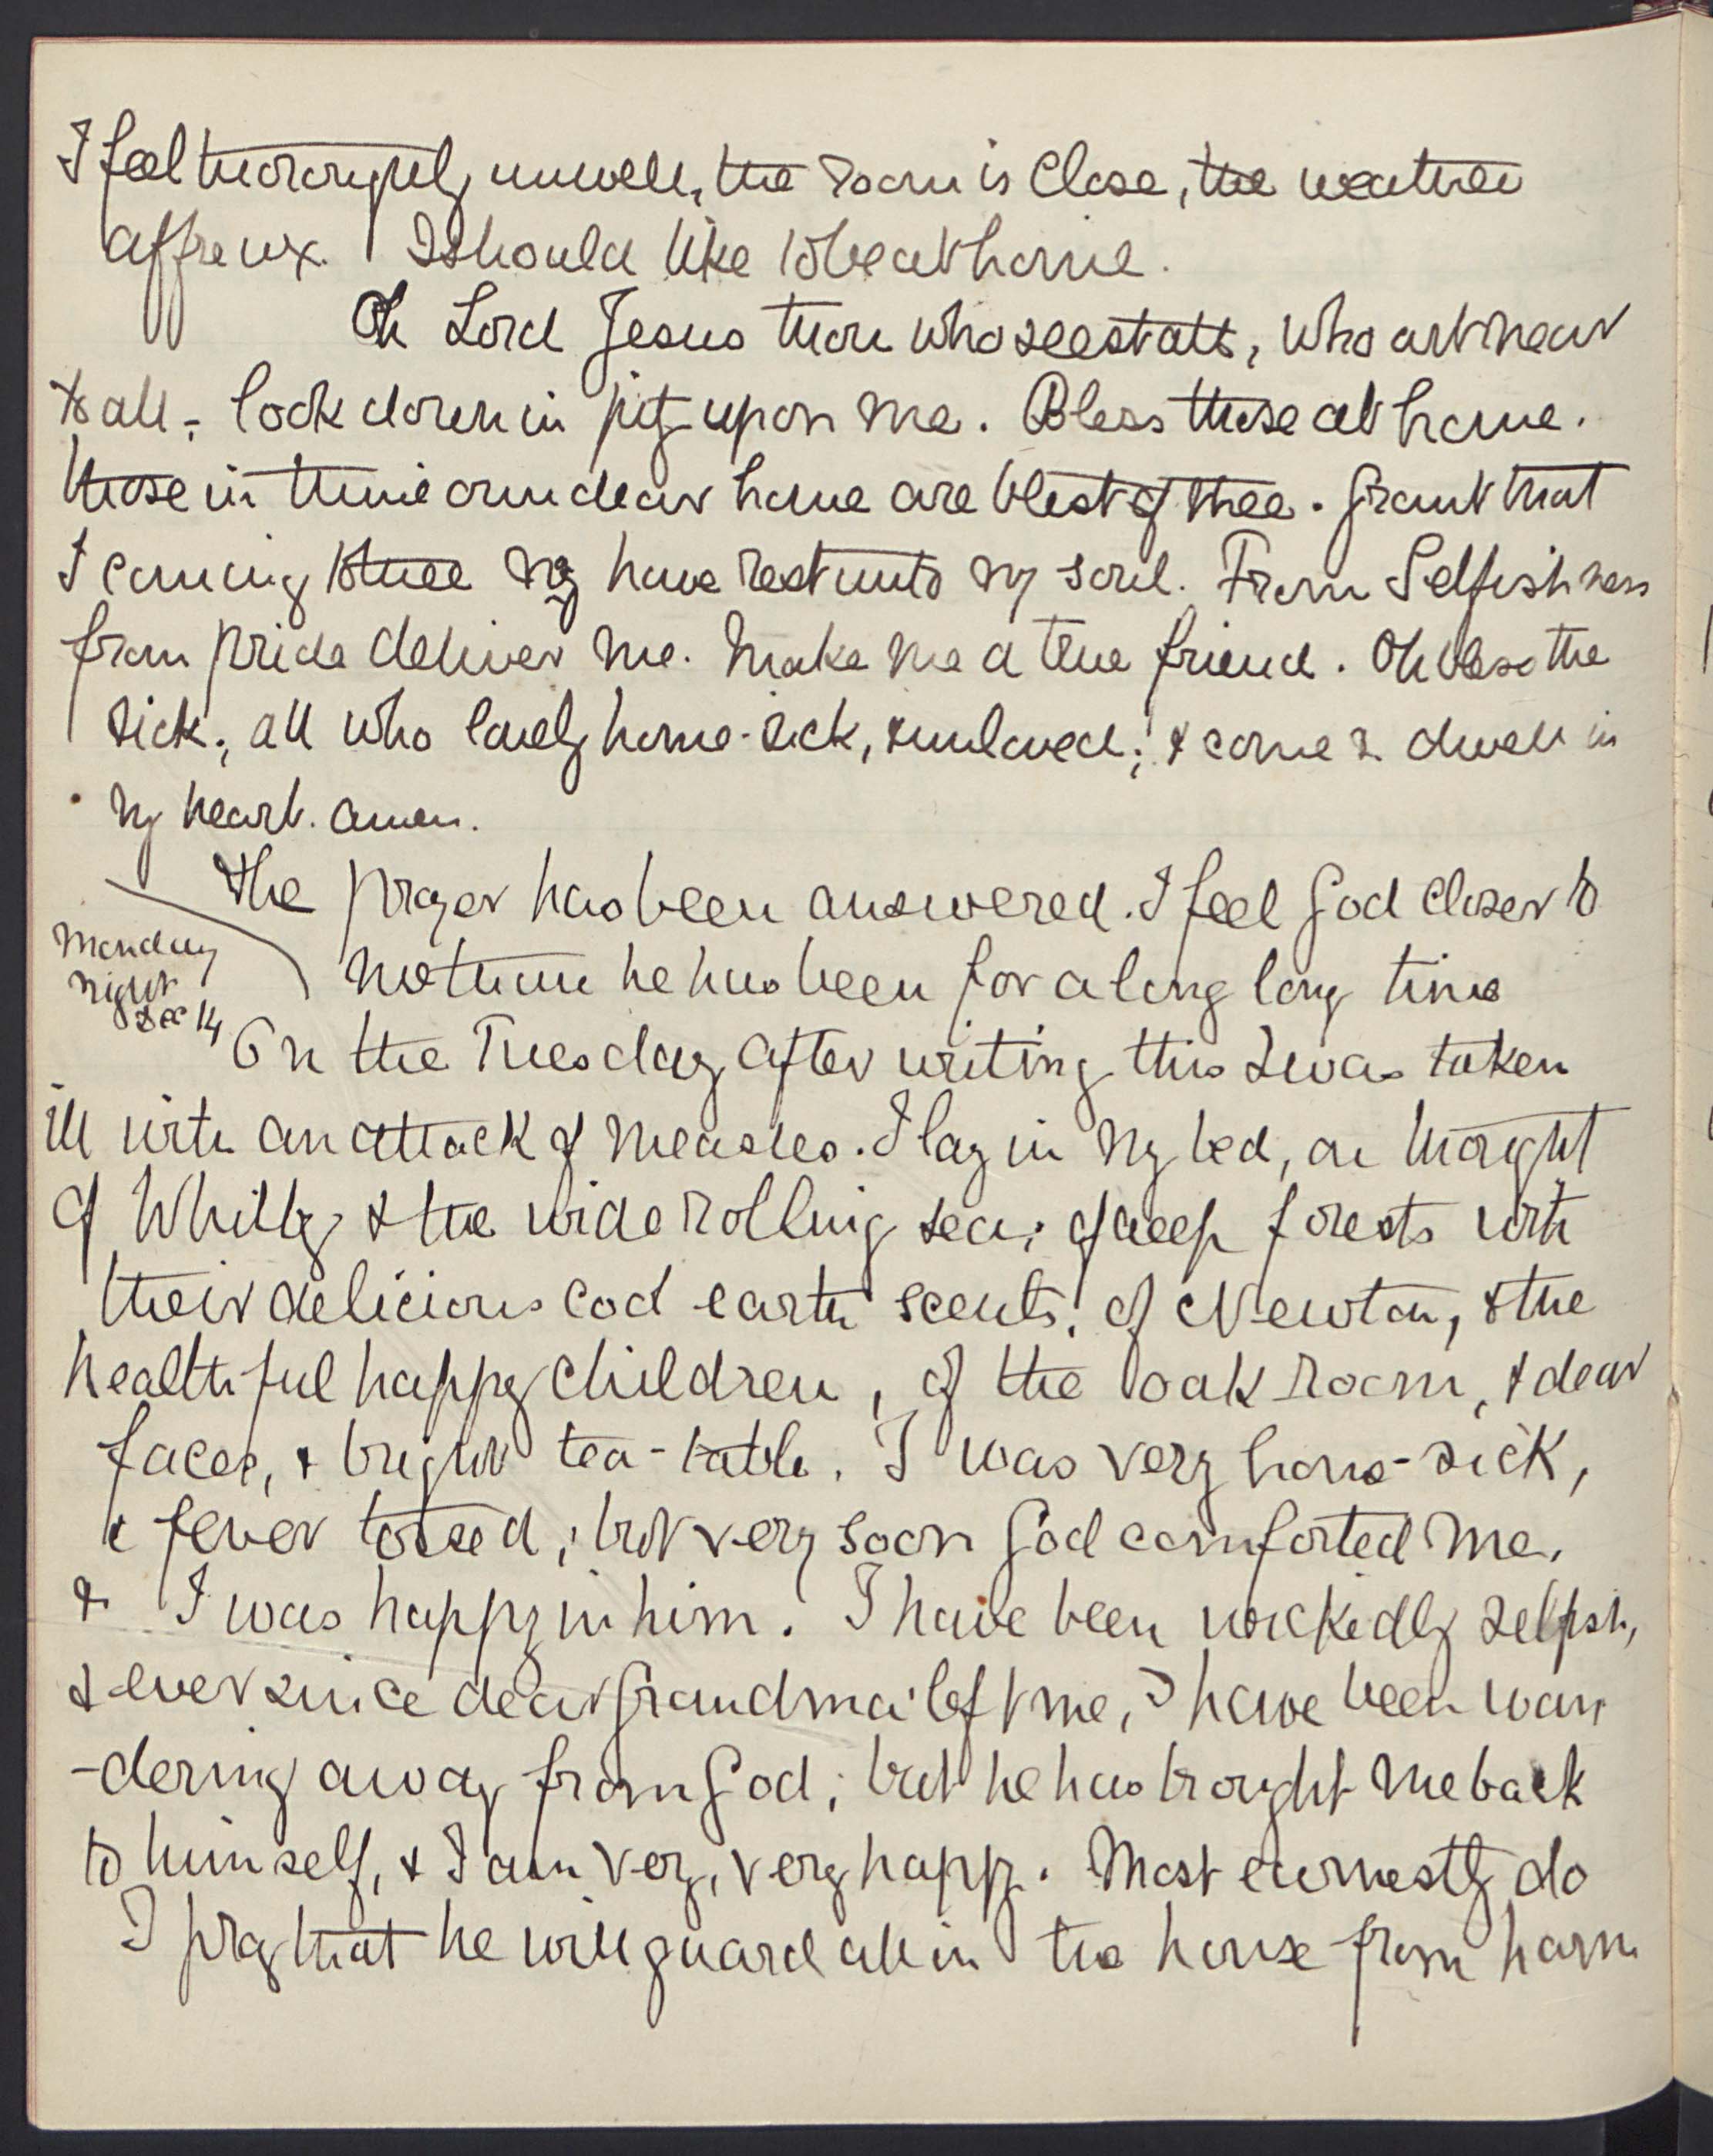 I feel thoroughly unwell, the room is close, the weather
affreux. I should like to be at home.
Oh Lord Jesus thou who seest all, who art near
to all, look down in pity upon me. Bless those at home.
those in thine own dear home are blest of thee. Grant that
I coming to thee may have rest unto my soul. From Selfishness
from pride deliver me. Make me a true friend. Oh bless the
sick, all who lonely home-sick, & unloved; & come & dwell in
my heart. Amen.
The prayer has been answered. I feel God closer to
me than he has been for a long long time
Monday
night
Dec 14
On the Tuesday after writing this I was taken
ill with an attack of measles. I lay in my bed, & thought
of Whitby & the wide rolling sea; of deep forests with
their delicious cool earth scents; of Newton, & the
healthful happy children, of the oak room, & dear
faces, & bright tea-table. I was very home-sick,
& fever tossed; but very soon God comforted me,
& I was happy in him. I have been wickedly selfish,
& ever since dear Grandma left me, I have been wan
-dering away from God; but he has brought me back
to himself, & I am very, very happy. Most earnestly do
I pray that he will guard all in the house from harm